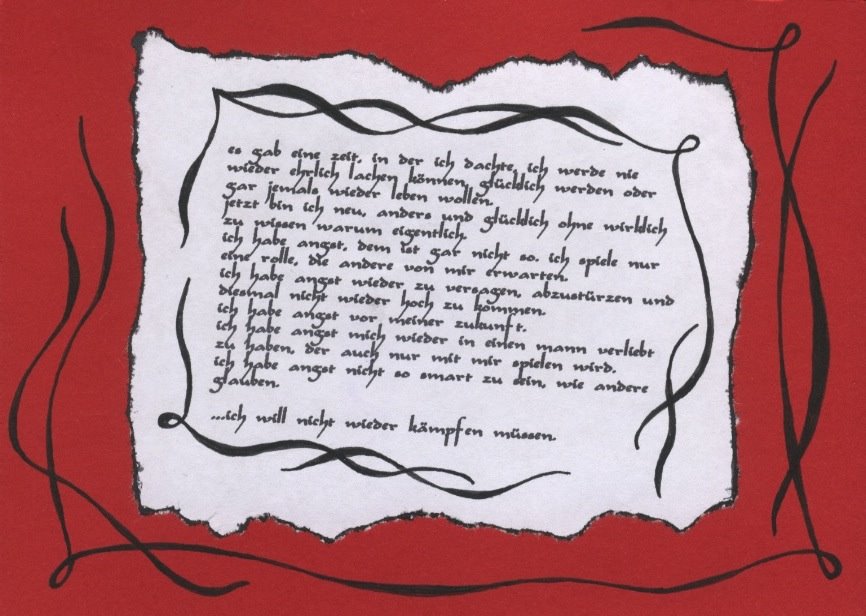 es gab eine zeit, in der ich dachte, ich werde nie
wieder ehrlich lachen können, glücklich werden oder
gar jemals wieder leben wollen.
jetzt bin ich neu, anders und glücklich ohne wirklich
zu wissen warum eigentlich.
ich habe angst, dem ist gar nicht so. ich spiele nur
eine rolle, die andere von mir erwarten.
ich habe angst wieder zu versagen, abzustürzen und
diesmal nicht wieder hoch zu kommen.
ich habe angst vor meiner zukunft.
ich habe angst mich wieder in einen mann verliebt
zu haben, der auch nur mit mir spielen wird.
ich habe angst nicht so smart zu sein, wie andere
glauben.
...ich will nicht wieder kämpfen müssen.